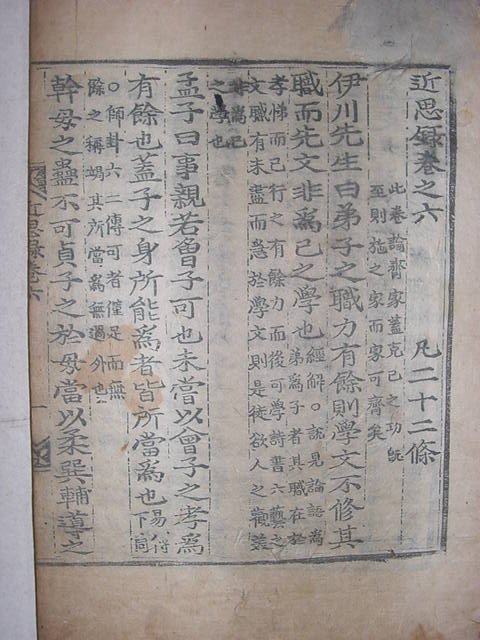 近思錄卷之六
此卷論齊家蓋克己之功旣
至則施之家而家可齊矣
凡二十二條
伊川先生曰弟子之職力有餘則學文不修其
職而先文非爲己之學也
經解○說見論語爲
弟爲子者其職在於
孝悌而已行之有餘力而後可學詩書六藝之
文職有未盡而急於學文則是徒欲人之觀美
非爲己
之學也
孟子曰事親若曾子可也未嘗以曾子之孝爲
有餘也蓋子之身所能爲者皆所當爲也
易傳
下同
○師卦六二傳可者僅足而無
餘之稱竭其所當爲無過外也
幹母之蠱不可貞子之於母當以柔巽輔導之
近思錄卷六
一